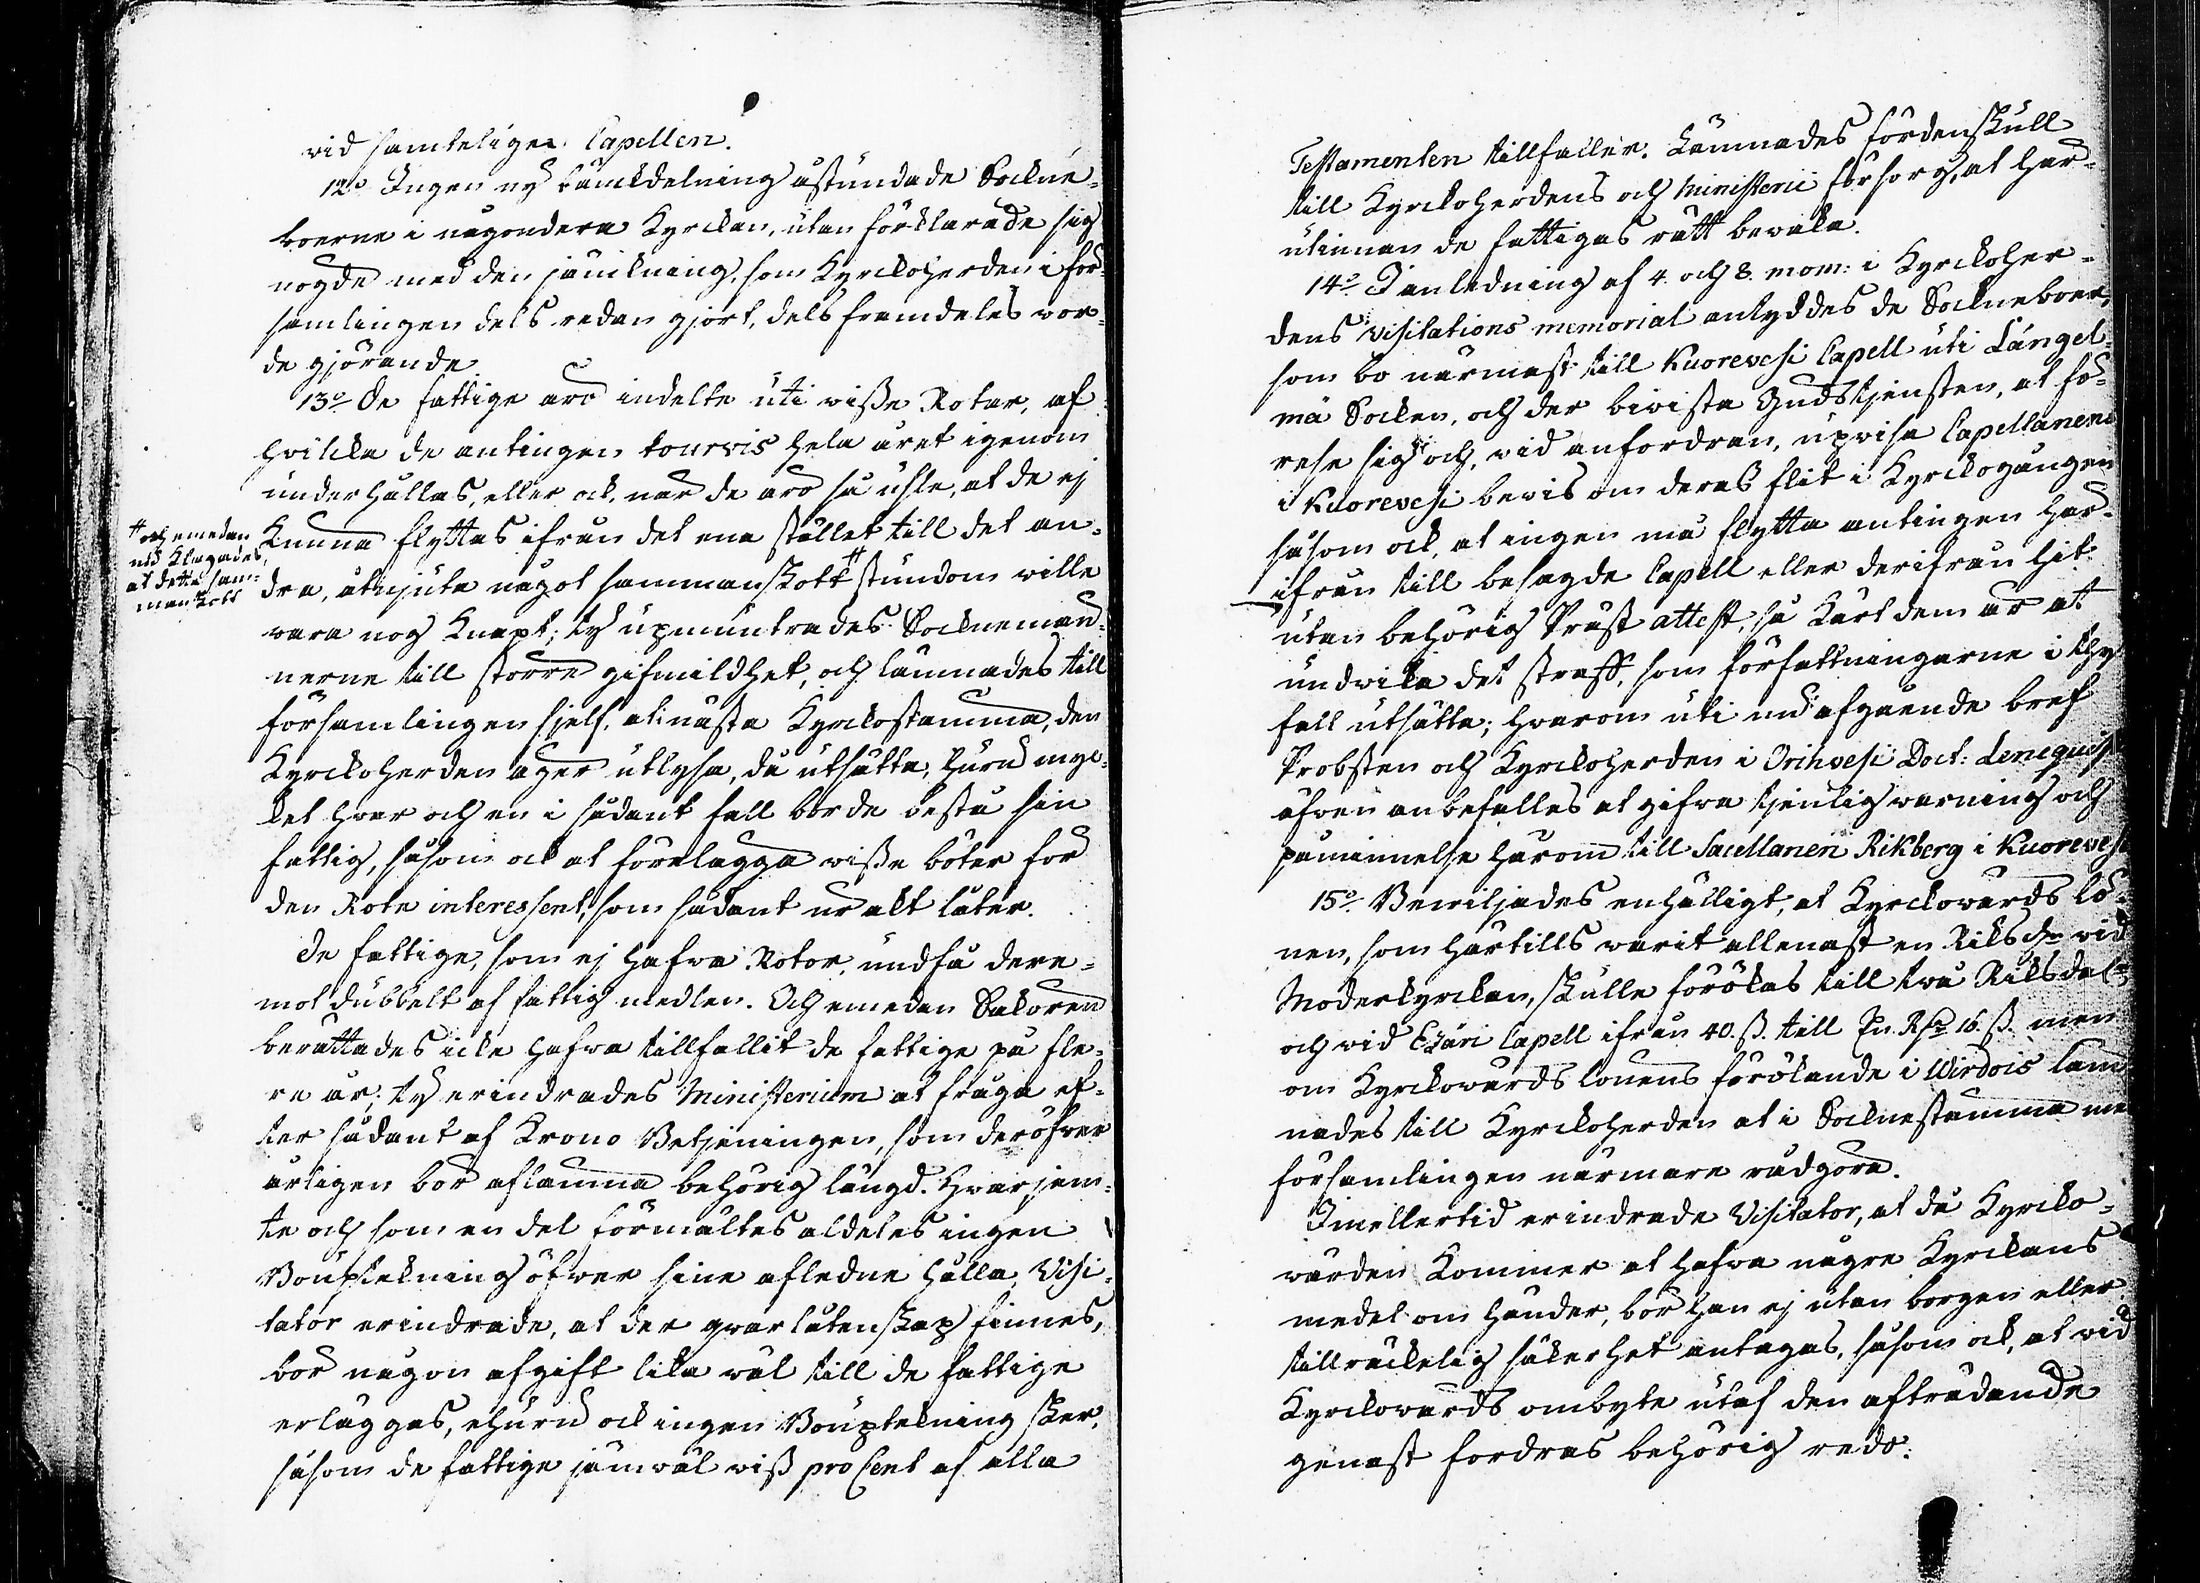 vid samtelige Capellen.
12o Ingen ny bänckdelning åstundade Sockne-
boerne i någondera Kyrckan, utan förklarade sig
nögde med den jämckning, som Kyrckoherden i för-
samlingen dels redan gjort, dels framdeles wor-
de gjörande.
13o De fattige äro indelte uti wiße Rotar, af
hvilcka de antingen tourvis hela året igenom
underhållas, eller ock, när de äro så usle, at de ej
Kunna flyttas ifrån det ena stället till det an-
dra, åtnjuta något sammanskott # stundom wille
# och emedan
nu Klagades,
at detta sam-
manskott
vara nog Knapt; ty upmuntrades Sockneman-
nerne till större gifmildhet, och lämnades till
församlingen sjelf, at näste Kyrckostämma, den
Kyrckoherden äger utlysa, då utsätta, huru myc-
ket hvar och en i sådant fall borde bestå sin
fattig, såsom ock at förelägga wiße böter för
den Rote interessent, som sådant ur akt låter.
De fattige, som ej hafva Rotar, undfå dere-
mot dubbelt af fattig medlen. Och emedan Saköron
berättades icke hafva tillfallit de fattige på fle-
re år; ty erindrades Ministerium at fråga ef-
ter sådant af Krono Betjeningen, som deröfver
årligen bör aflämna behörig längd. Hvarjem-
te och som en del förmältes aldeles ingen
Boupteckning öfver sine afledne hålla, Visi-
tator erindrade, at der qvarlåtenskap finnes,
bör någon afgift lika wäl till de fattige
erläggas, ehuru ock ingen Boupteckning sker,
såsom de fattige jämwäl wiß pro Cent af alla
Testamenten tillfaller. Lämnades fördenskull
till Kyrckoherdens och Ministerii försorg, at här-
utinnan de fattigas rätt bevaka.
14o I anledning af 4. och 8. mom: i Kyrckoher-
dens Visitations memorial antyddes de Sockneboer,
som bo närmast till Kuorevesi Capell uti Längel-
mä Socken, och der bivista Gudstjensten, at fö-
rese sig och, vid anfordran, upvisa Capellanens
i Kuorevesi bevis om deras flit i Kyrckogången
såsom ock, at ingen må flytta antingen här-
ifrån till besagde Capell eller derifrån hit
utan behörig Präst attest, så kärt dem är at
undvika det straff, som författningarne i thy
fall utsätta; hvarom uti nu afgående bref
Probsten och Kyrckoherden i Orihvesi Doct: Lenequist
äfven anbefalles at gifva tjenlig warning och
påminnelse härom till Sacellanen Rikberg i Kuorevesi
15o Bewiljades enhälligt, at Kyrckowärds lö-
nen, som härtills warit allenast en Riksdr vid
Moderkyrckan, skulle förökas till två Riksdalr
och vid Etzäri Capell ifrån 40. ß. till En Rdr 16. ß. men
om Kyrckowärds lönens förökande i Wirdois läm-
nades till Kyrckoherden at i Socknestämma me
församlingen närmare rådgöra.
Imellertid erindrade Visitator, at då Kyrcko-
wärden Kommer at hafva några Kyrckans
medel om händer, bör han ej utan borgen eller
tillräckelig säkerhet antagas, såsom ock, at vid
Kyrckowärds ombyte utaf den afträdande
genast fordras behörig redo.